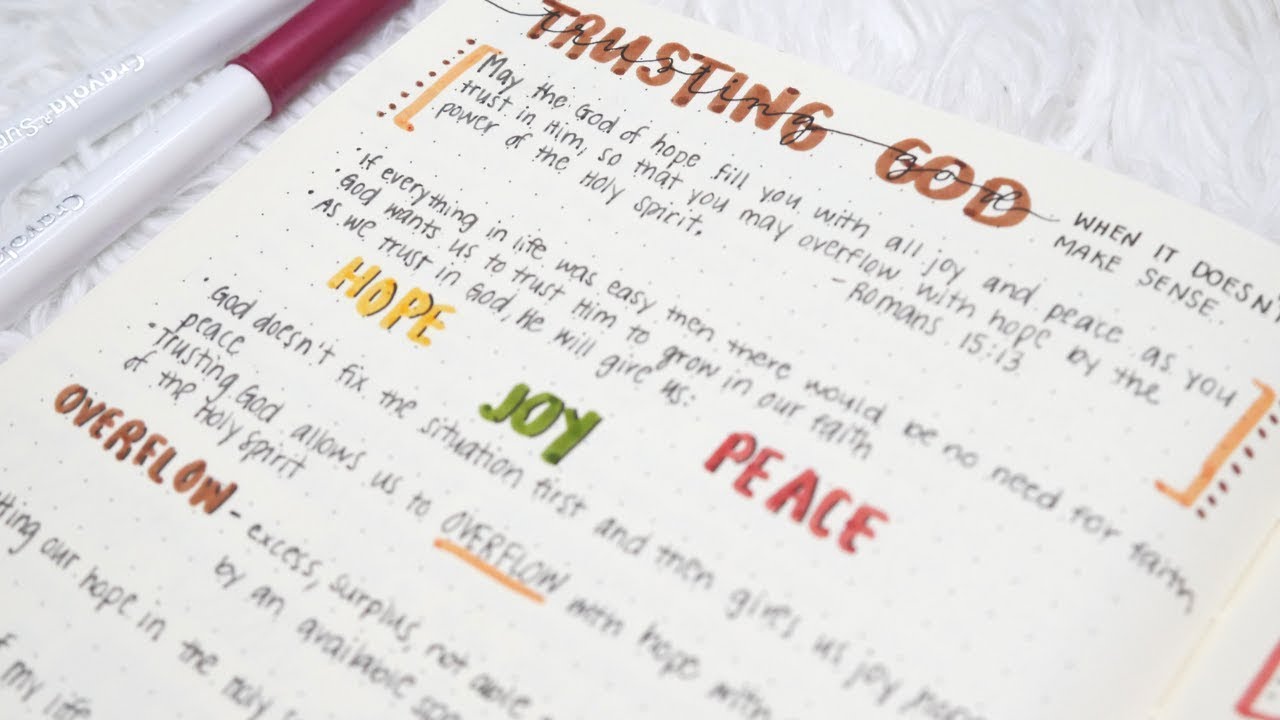 Crayola Su
Crayola
TRUSTING GOD
trusting god
WHEN IT DOESN'
MAKE SENSE.
May the God of hope fill you with all joy and peace as you
trust in Him, so that you may overflow with hope by the
power of the Holy Spirit.
- Romans 15:13
• If everything in life was easy then there would be no need for faith
• God wants us to trust Him to grow in our faith
• As we trust in God, He will give us:
HOPE
JOY
PEACE
• God doesn't fix the situation first and then gives us joy
peace
• Trusting God allows us to OVERFLOW with hope with
of the Holy Spirit
OVERFLOW - excess, surplus, not able
by an available
our hope in the Holy
my life